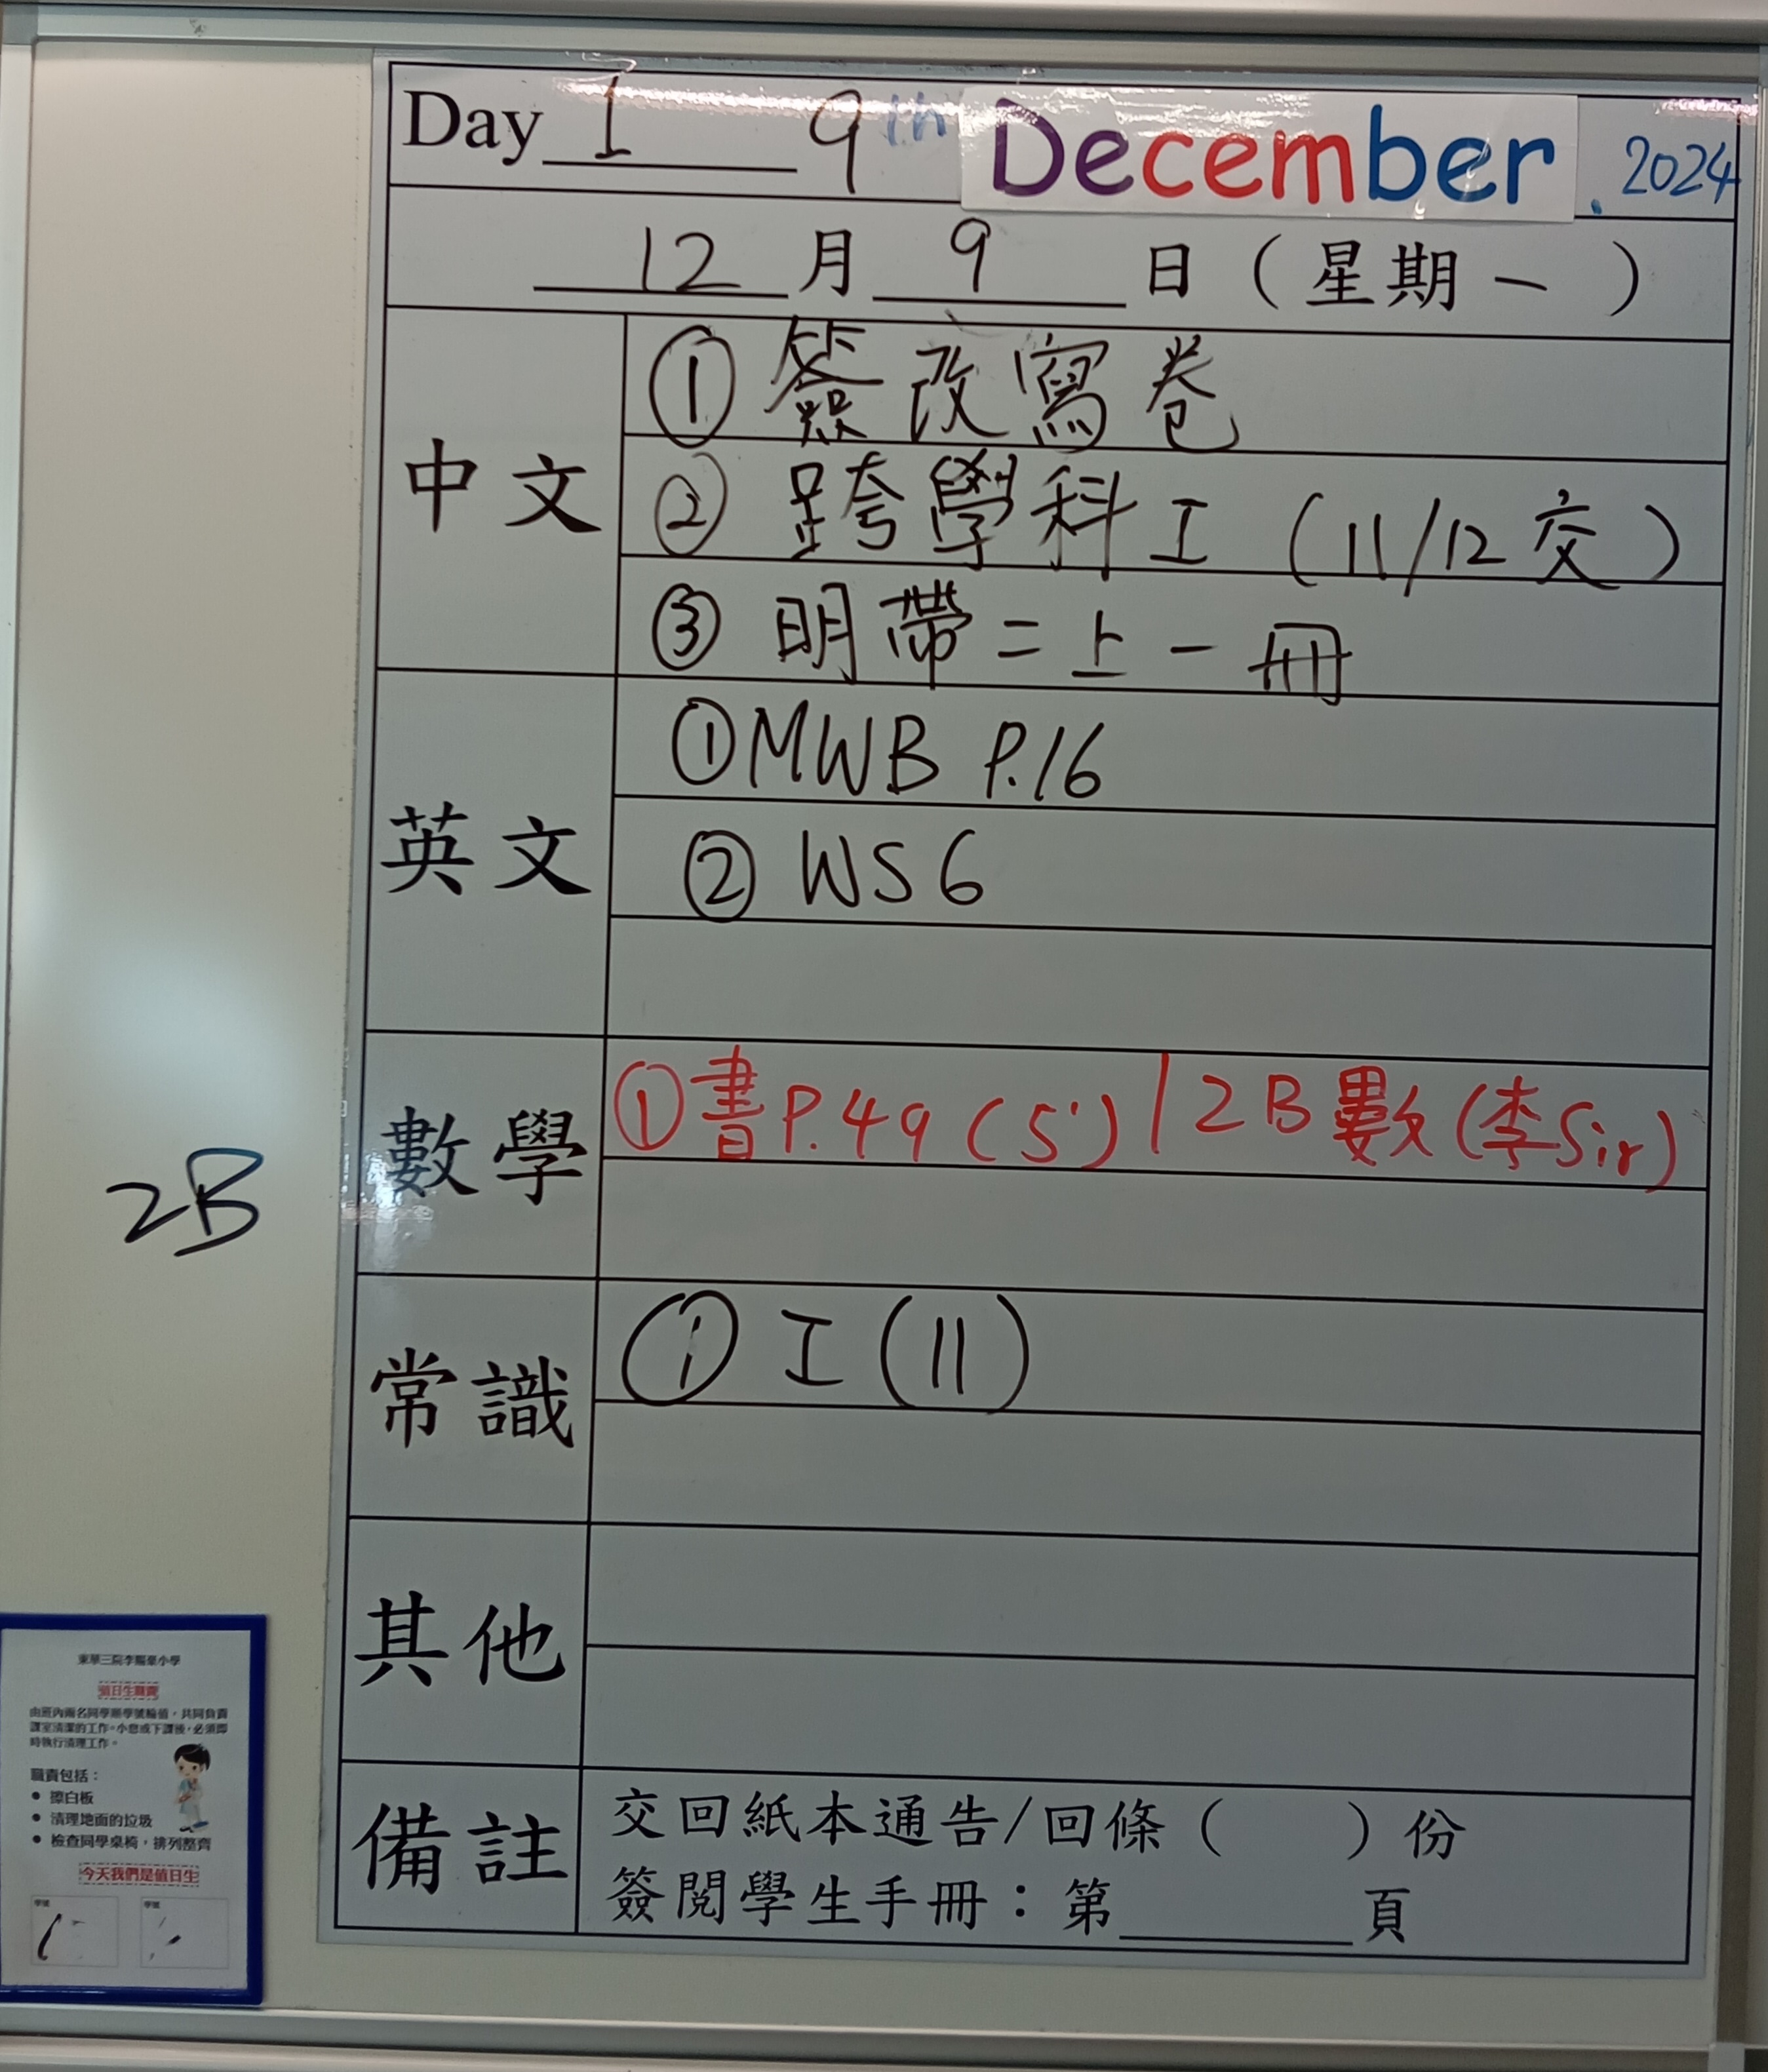 Day 1 9th December, 2024
12 月 9 日 ( 星期一 )
中文
① 簽改寫卷
② 跨學科工 (11/12 交)
③ 明帶二上一冊
英文
① MWB P.16
② WS 6
數學
① 書 P.49 (5') | 2B 數 (李Sir)
常識
① 工 (11)
其他
備註
交回紙本通告/回條 ( ) 份
簽閱學生手冊：第______頁
2B
東華三院李賜豪小學
值日生職責
由班內兩名同學順學號輪值，共同負責
課室清潔的工作。小息或下課後，必須即
時執行清理工作。
職責包括：
● 擦白板
● 清理地面的垃圾
● 檢查同學桌椅，排列整齊
今天我們是值日生
學號 學號